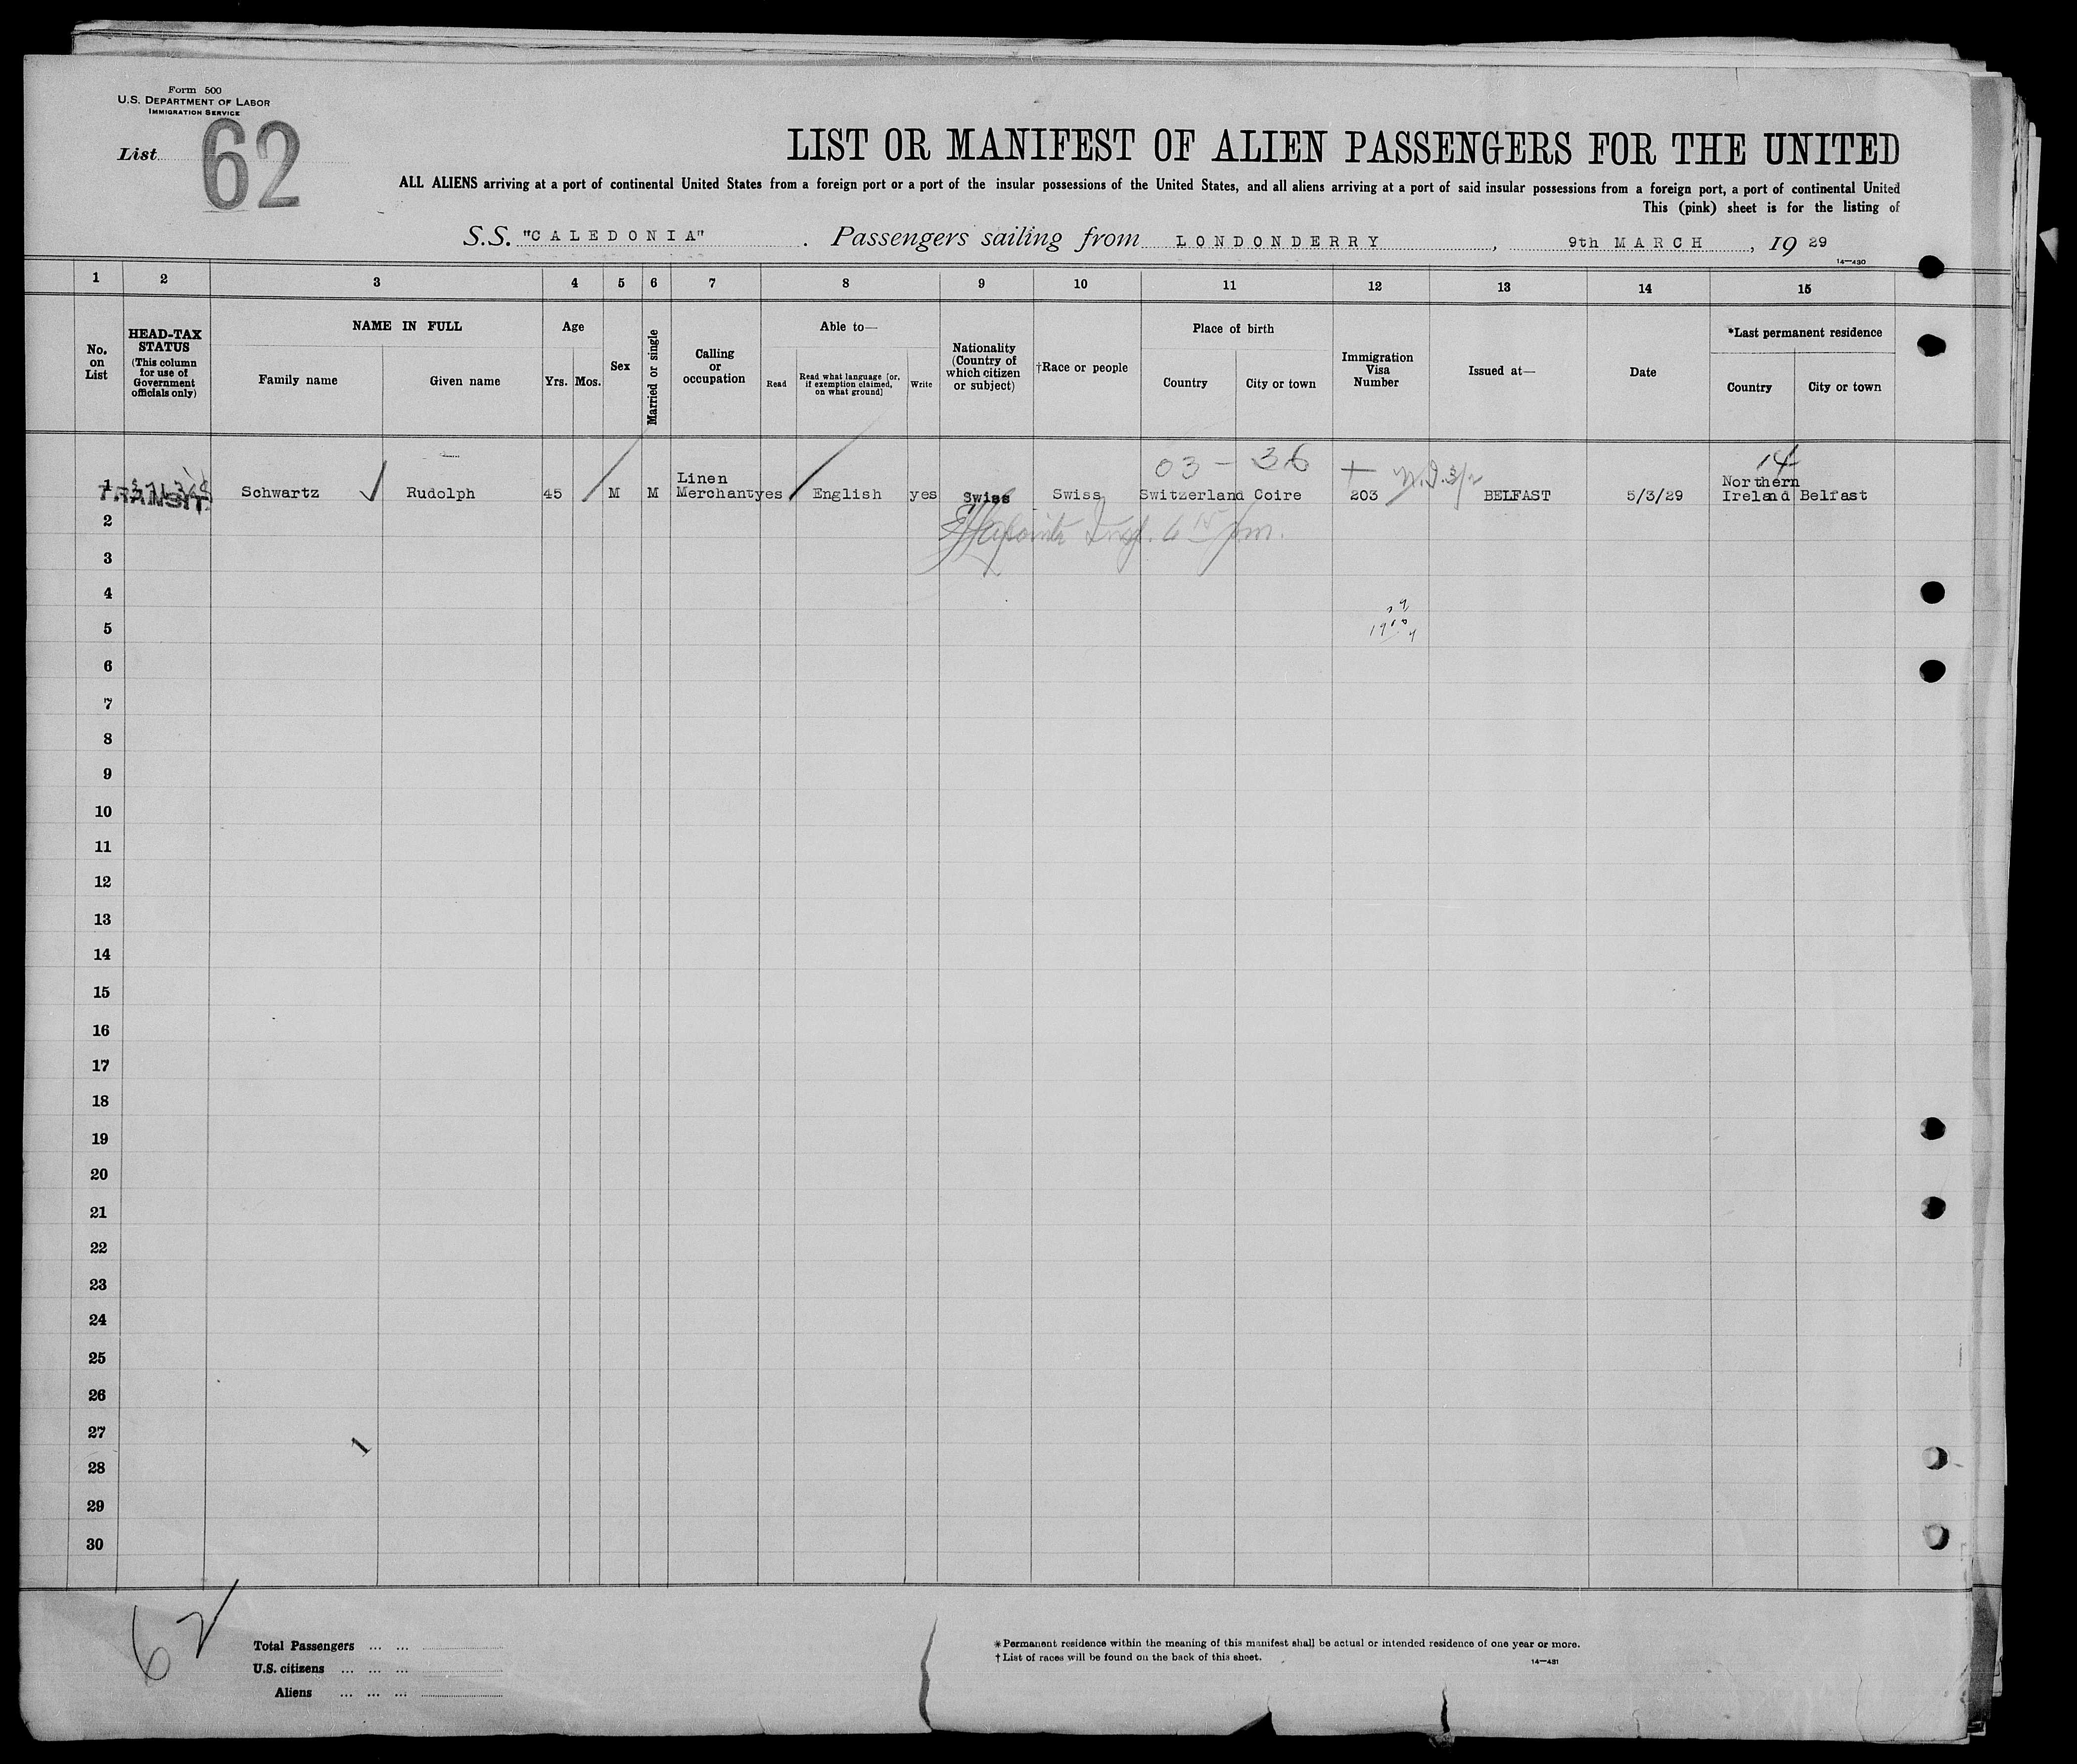 Form 500
U.S. DEPARTMENT OF LABOR
IMMIGRATION SERVICE
List 62
LIST OR MANIFEST OF ALIEN PASSENGERS FOR THE UNITED
ALL ALIENS arriving at a port of continental United States from a foreign port or a port of the insular possessions of the United States, and all aliens arriving at a port of said insular possessions from a foreign port, a port of continental United
This (pink) sheet is for the listing of
S.S. "CALEDONIA". Passengers sailing from LONDONDERRY, 9th MARCH, 1929
14—430
1 2 3 4 5 6 7 8 9 10 11 12 13 14 15
No. on List
HEAD-TAX STATUS
(This column for use of Government officials only)
NAME IN FULL
Family name
Given name
Age
Yrs. Mos.
Sex
Married or single
Calling or occupation
Able to—
Read
Read what language [or, if exemption claimed, on what ground]
Write
Nationality (Country of which citizen or subject)
†Race or people
Place of birth
Country
City or town
Immigration Visa Number
Issued at—
Date
*Last permanent residence
Country
City or town
03 - 36
14
1 TRANSIT Schwartz Rudolph 45 M M Linen Merchant yes English yes Swiss Swiss Switzerland Coire 203 BELFAST 5/3/29 Northern Ireland Belfast
2
3
4
5
6
7
8
9
10
11
12
13
14
15
16
17
18
19
20
21
22
23
24
25
26
27
1
28
29
30
62
Total Passengers ... ...
U.S. citizens ... ... ...
Aliens ... ... ...
*Permanent residence within the meaning of this manifest shall be actual or intended residence of one year or more.
†List of races will be found on the back of this sheet.
14—431